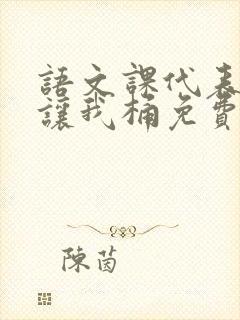 語文課代表
讓我桶免費
陳茵